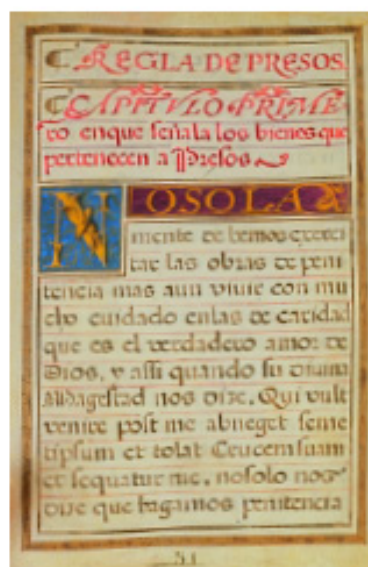 REGLA DE PRESOS.
CAPITVLO PRIME
ro enque señala los bienes que
pertenecen a Presos
NOSOLA
mente debemos exerci
tar las obras de peni
tencia mas aun vivir con mu
cho cuidado enlas de caridad
que es el verdadero amor de
Dios, y assi quando su divina
Magestad nos dize, Qui vult
venire post me abneget seme
tipsum et tolat Crucem suam
et sequatur me, nosolo nos
dize que hagamos penitencia